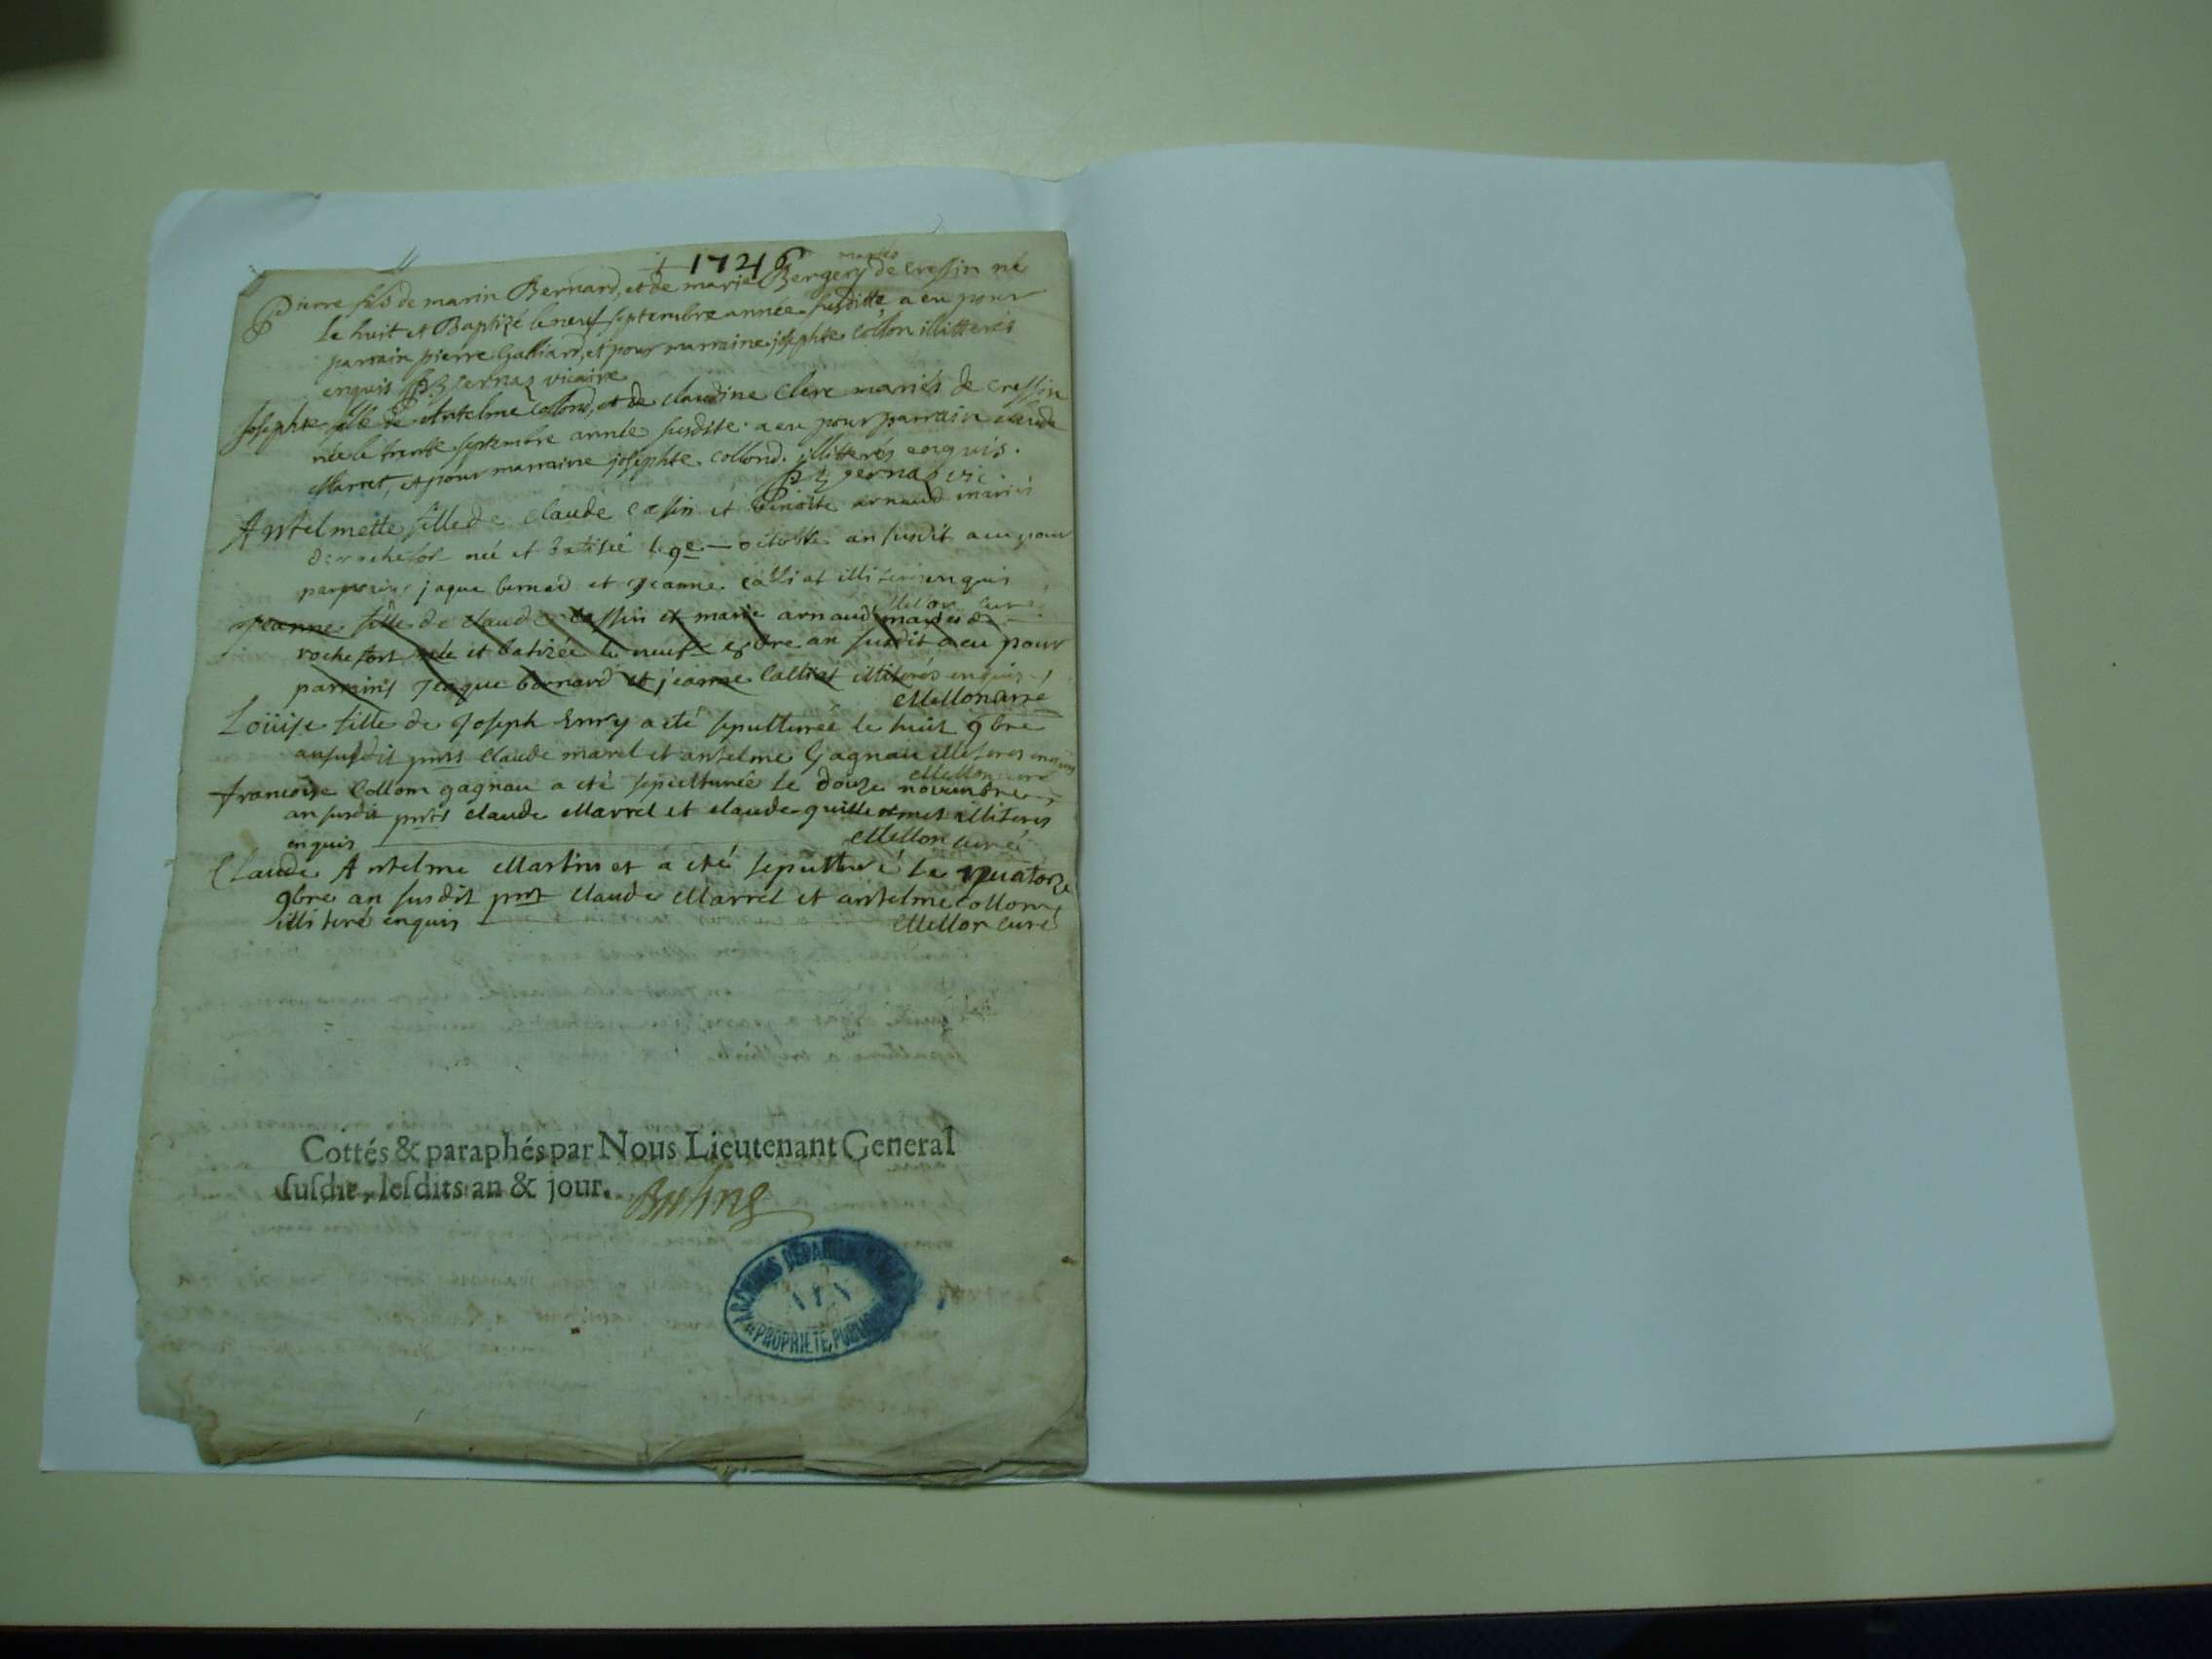 1746
Pierre fils de marin Bernard, et de marie Bergery mariés de cressin né
le huit et Baptizé le neuf septembre année susditte, a eu pour
parrain pierre Galliard, et pour marraine josephte Collon illitterés
enquis vicaire
Josephte fille de Antelme Collond, et de claudine Clerc mariés de cressin
née le trente septembre année susdite. a eu pour parrain claude
Marret, et pour marraine josephte Collond. illitterés enquis.
vic
Antelmette fille de claude cassin et arnaud mariés
de rochefort né et batisée le 9e octobre an susdit a eu pour
jaque bernad et jeanne Calliat illiteris enquis
Mellon curé
Jeanne fille de claude cassin et marie arnaud mariés de
rochefort née et batizée le neufe 8bre an susdit a eu pour
parrains Jaque bernard et jeanne Calliat illiterés enquis
Mellon curé
Loüise fille de Joseph Emry a été sepulturée le huit 9bre
an susdit pnts claude marel et antelme Gagnau illiteres enquis
Mellon curé
francoise Collom gagnau a eté sepulturée le douze novembre
an susdit pnts claude Marrel et claude illiteres
enquis Mellon curé
Claude Antelme Martin et a eté sepulturé le quatorze
9bre an susdit pnt claude Marrel et antelme Collom
illiteré enquis Mellon curé
Cottés & paraphés par Nous Lieutenant General
susdit, lesdits an & jour.
ARCHIVES DÉPARTEMENTALES
AIN
PROPRIÉTÉ PUBLIQUE